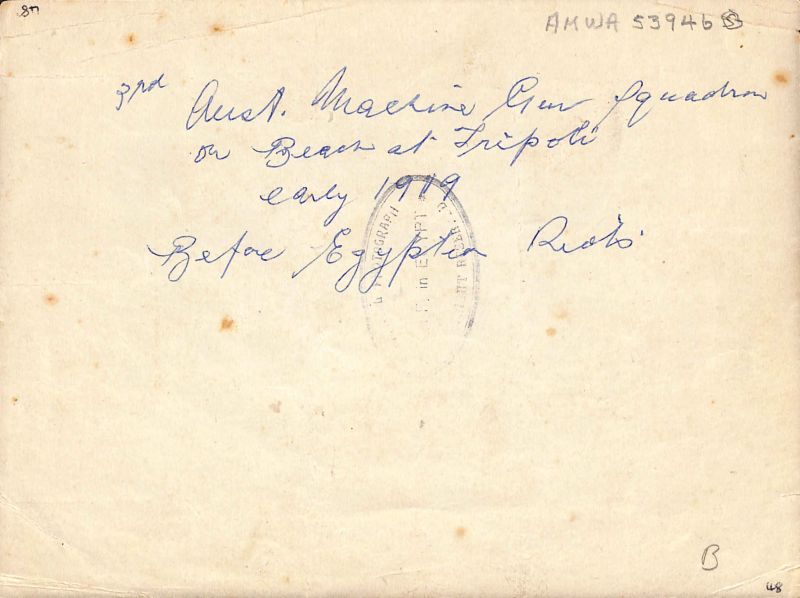 8n
AMWA 53946 B
3rd Aust. Machine Gun Squadron
on Beach at Tripoli
early 1919
Before Egyptian Riots
PHOTOGRAPH
in EGYPT
B
48